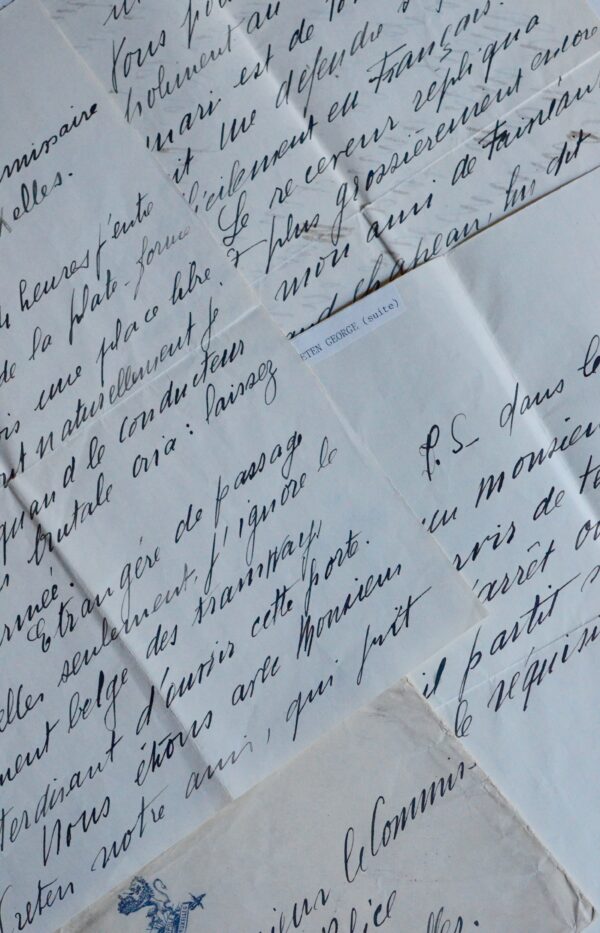 Vous pou
poliment au
mari est de to
it me défendre s
cilement en Français.
Le receveur répliqua
plus grossièrement encore
mon ami de Fainéant
and chapeau, lui dit
missaire
xelles.
heures j'entre
de la plate-forme
is une place libre.
nt naturellement je
quand le conducteur
brutale cria: laissez
rmée.
Etrangére de passage
elles seulement, j'ignore le
ment belge des tramway,
terdisant d'ouvrir cette porte.
Nous étions avec Monsieur
Kreten notre ami, qui fuit
ETEN GEORGE (suite)
P.S_ dans le
eu monsieu
rvis de te
'arrêt ou
il partit s
le réquisi
ieur le Commis-
lice
elles.